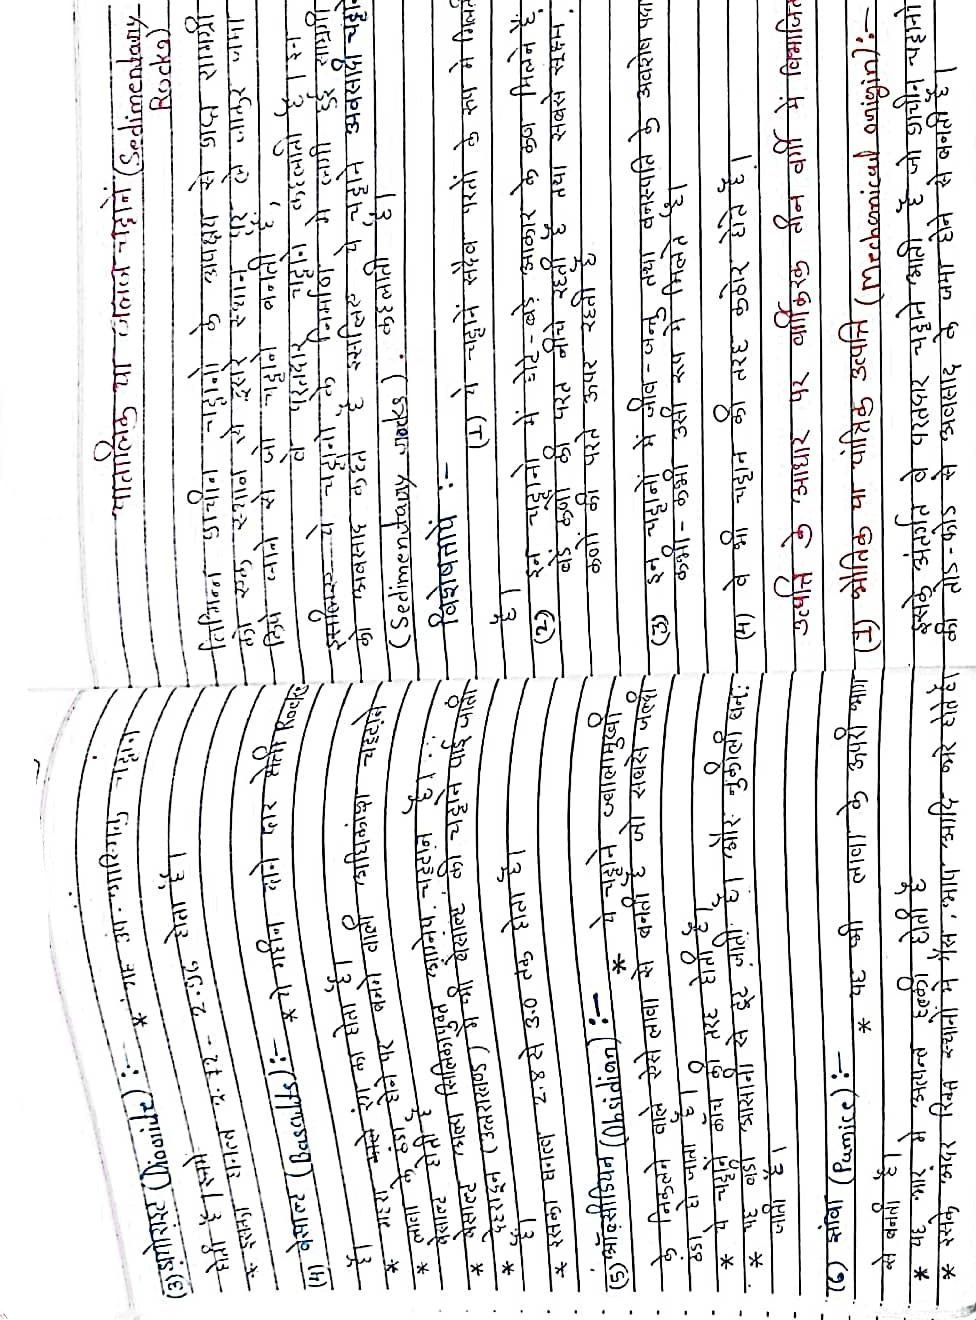 (3) डायोराइट (Diorite) :- * यह उप-आग्नेय चट्टान
होती है। इसमें
* इसका घनत्व 2.72 - 2.96 होता है।
(4) बेसाल्ट (Basalts) :- * ये महीन दाने दार मैली Rocks
है।
* गहरा काले रंग का होता है।
* लावा के ठंडा होने पर बनने वाली अधिकांश चट्टान
बेसाल्ट होती है
* बेसाल्ट अल्प सिलिकायुक्त आग्नेय चट्टान है।
* देहरादून (उत्तराखण्ड) में भी बेसाल्ट की चट्टाने पाई जाती
है।
* इसका घनत्व 2.8 से 3.0 तक होता है।
(5) ऑब्सीडियन (Obsidian) :- * ये चट्टाने ज्वालामुखी
के निकलने वाले ऐसे लावा से बनती है जो सबसे जल्दी
ठंडा हो जाता है।
* ये चट्टाने काँच की तरह होती है।
* यह बड़ी आसानी से टूट जाती है। और नुकीली बन
जाती है।
(6) झांवा (Pumice) :- * यह भी लावा के ऊपरी भाग
से बनती है।
* यह भार में अत्यन्त हल्की होती है
* इसके अन्दर रिक्त स्थानों में गैस, भाप, आदि भर होता है
पातालिक या जलज चट्टानें (Sedimentary
Rocks)
विभिन्न प्राचीन चट्टानों के अपक्षय से प्राप्त सामग्री
को एक स्थान से दूसरे स्थान पर ले जाकर जमा
दिये जाने से जो चट्टाने बनती है,
वे परतदार चट्टाने कहलाती है। इन
इसीलिए ये चट्टानों के निर्माण में लगी हुई सामग्री
को अवसाद कहते है इसीलिए ये चट्टाने अवसादी चट्टाने
(Sedimentary rocks) कहलाती है।
विशेषतायें :-
(1) ये चट्टाने सदैव परतों के रूप में मिलती
है।
(2) इन चट्टानों में छोटे-बड़े आकार के कण मिलते है
बड़े कणों की परत नीचे रहती है तथा सबसे सूक्ष्म
कणों की परते ऊपर रहती है
(3) इन चट्टानों में जीव-जन्तु तथा वनस्पति के अवशेष पाये
कभी-कभी उसी रूप में मिलते है।
(4) वे भी चट्टान की तरह कठोर होते है।
उत्पत्ति के आधार पर वर्गीकरण तीन वर्गों में विभाजित
(1) भौतिक या यांत्रिक उत्पत्ति (Mechanical origin) :-
इसके अंतर्गत वे परतदार चट्टाने आती है जो प्राचीन चट्टानों
की तोड़-फोड़ से अवसाद के जमा होने से बनती है।